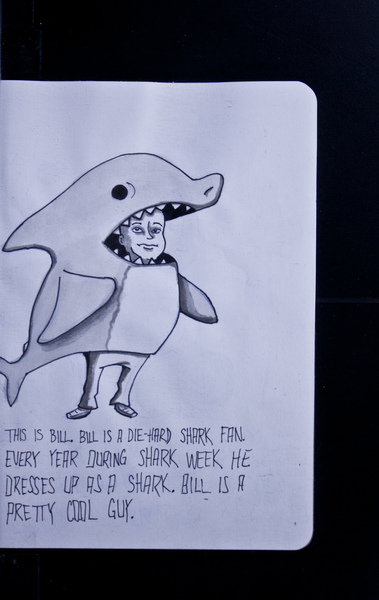 THIS IS BILL. BILL IS A DIE-HARD SHARK FAN.
EVERY YEAR DURING SHARK WEEK HE
DRESSES UP AS A SHARK. BILL IS A
PRETTY COOL GUY.